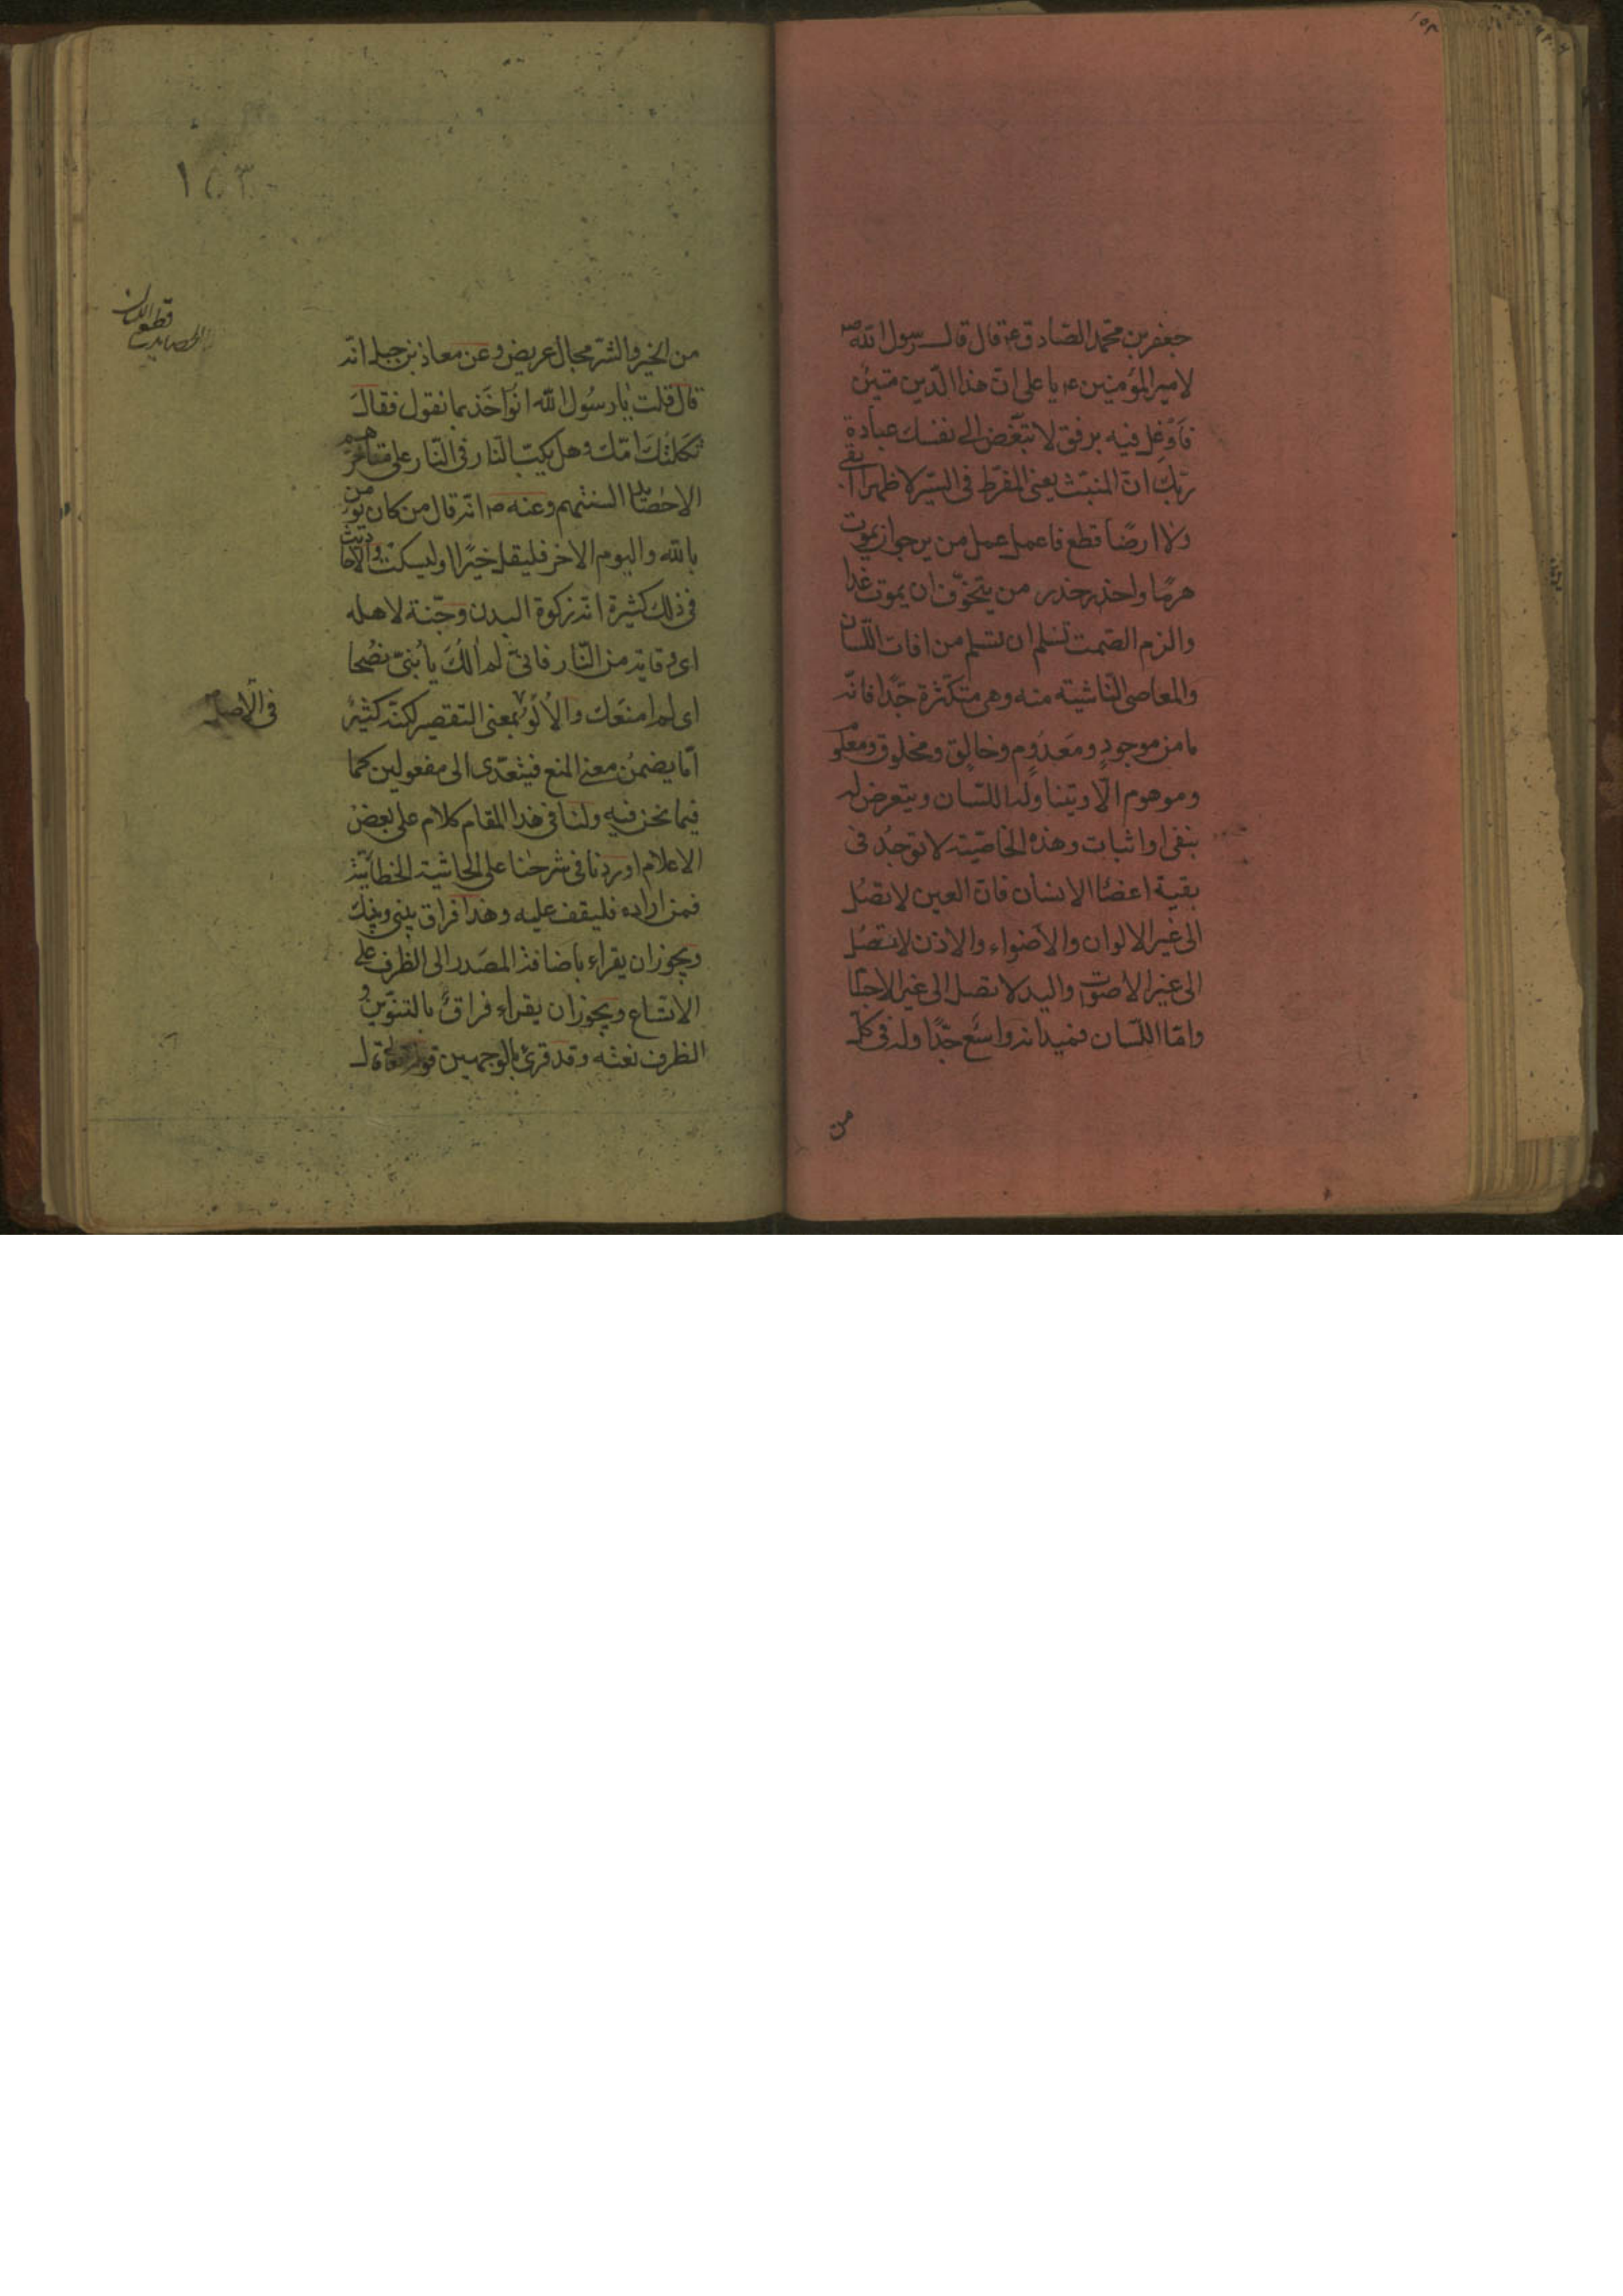 ١٥٣
جعفر بن محمد الصادق ع قال قال رسول الله ص
لامير المؤمنين ع يا على ان هذا الدين متين
فاوغل فيه برفق لا تبغض الى نفسك عبادة
ربك ان المنبت يعنى المفرط فى السير لا ظهرا ابقى
ولا ارضا قطع فاعمل عمل من يرجو ان يموت
هرما واحذر حذر من يتخوف ان يموت غدا
والزم الصمت تسلم ان تسلم من افات اللسان
والمعاصى الناشيته منه وهى متكثرة جدا فانه
ما من موجود ومعدوم وخالق ومخلوق ومعلوم
وموهوم الا ويتناوله اللسان ويتعرض له
بنفى او اثبات وهذه الخاصية لا توجد فى
بقية اعضا الانسان فان العين لا تصل
الى غير الالوان والاضواء والاذن لا تصل
الى غير الاصوات واليد لا تصل الى غير الاجسام
واما اللسان فميدانه واسع جدا وله فى كل
من
١٥٣
قطع اللسان
من الخير والشر مجال عريض وعن معاذ بن جبل انه
قال قلت يا رسول الله انواخذ بما نقول فقال
ثكلتك امك وهل يكب النار فى النار على مناخرهم
الا حصايد السنتهم وعنه ص انه قال من كان يؤمن
بالله واليوم الاخر فليقل خيرا او ليسكت والاحاديث
فى ذلك كثيرة انه زكوة البدن وجنة لاهله
اى وقاية من النار فانى لم الك يا بنى نصحا
اى لم امنعك والالو بمعنى التقصير لكنه كثير
فى الاصل
اما يضمن معنى المنع فيتعدى الى مفعولين كما
فيما نحن فيه ولنا فى هذا المقام كلام على بعض
الاعلام اوردنا فى شرحنا على الحاشية الخطائية
فمن اراده فليقف عليه وهذا فراق بينى وبينك
ويجوز ان يقراء باضافة المصدر الى الظرف على
الاتساع ويجوز ان يقراء فراق بالتنوين و
الظرف نعته وقد قرئ بالوجهين قوله تعالى قال